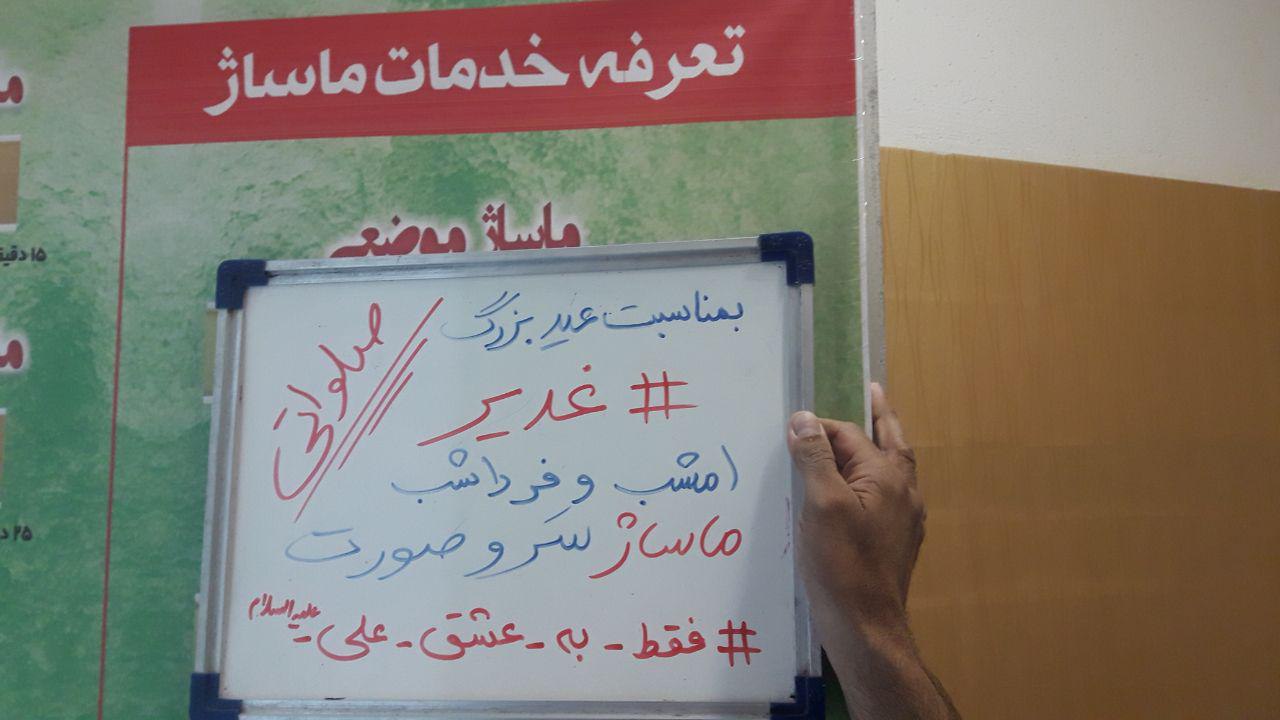 تعرفه خدمات ماساژ
ماساژ موضعی
۱۵ دقیق
۲۵ د
بمناسبت عید بزرگ
# غدیر
صلواتی
امشب و فرداشب
ماساژ سر و صورت
# فقط - به - عشق - علی - علیه السلام